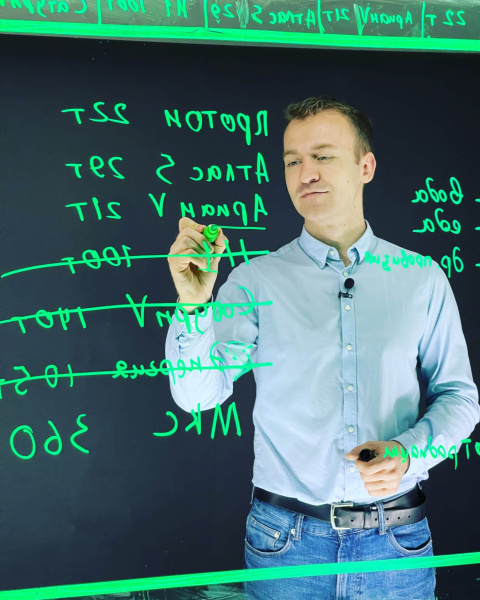 22т | Ариан V | 21т | Атлас 5 | 29 | Н1 100т | Сатурн
Протон 22т
Атлас 5 29т
Ариан V 21т
Н1 100т
Сатурн V 140т
Энергия 105т
МКС 360
- вода
- еда
- др провизия
от радиации